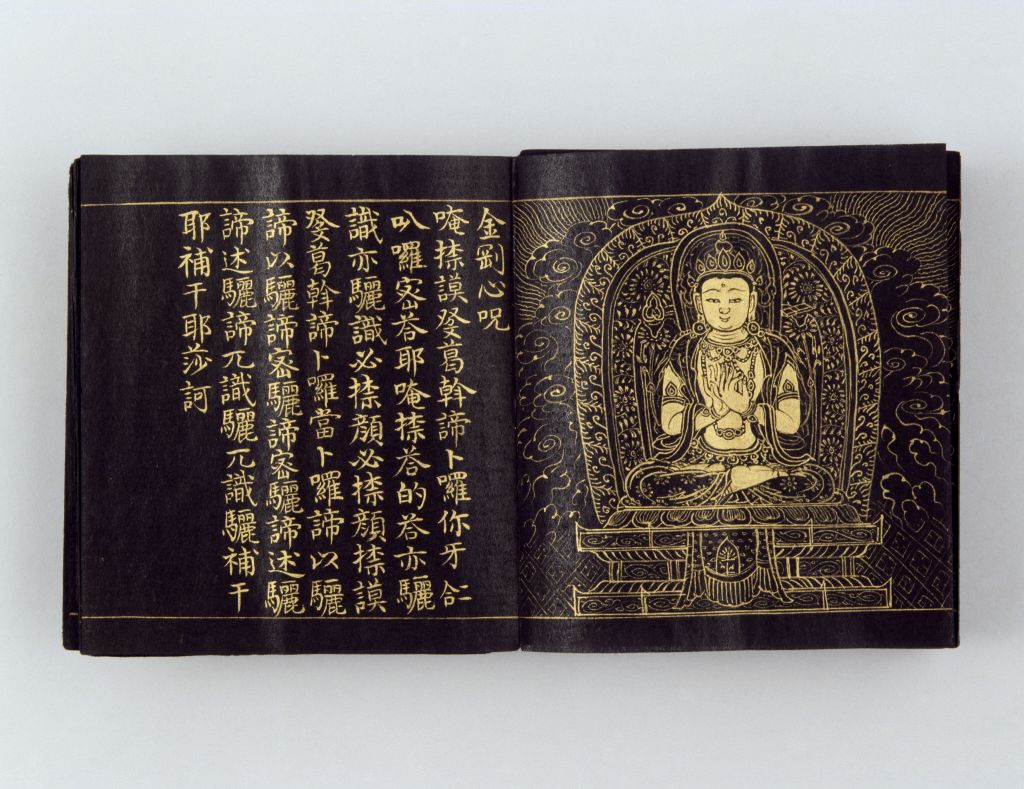 金剛心呪
唵捺謨癹葛斡諦卜囉你牙仜
叭囉宻荅耶唵捺荅的荅亦驪
識亦驪識必捺顔必捺顔捺謨
癹葛斡諦卜囉當卜囉諦以驪
諦以驪諦宻驪諦宻驪諦述驪
諦述驪諦兀識驪兀識驪補干
耶補干耶莎訶